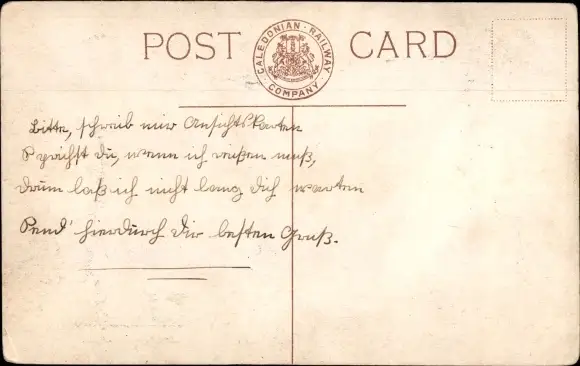 POST CARD
CALEDONIAN · RAILWAY · COMPANY
Bitte, schreib mir Ansichtskarten
Sprichst du, wenn ich reißen muß,
Drum laß ich nicht lang dich warten
Send' hierdurch dir besten Gruß.